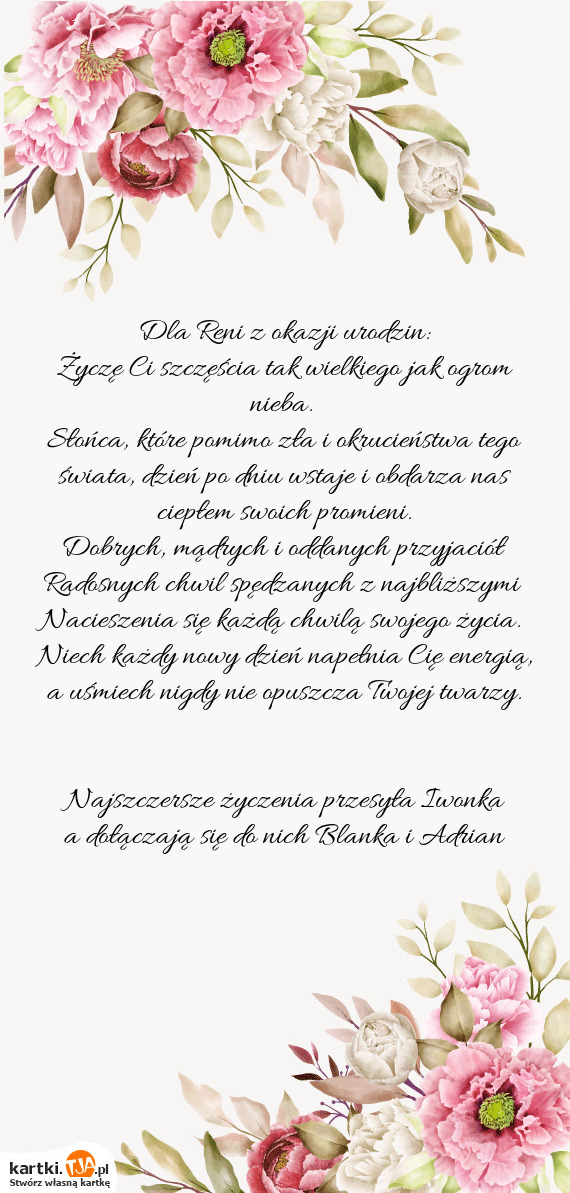 Dla Reni z okazji urodzin:
Życzę Ci szczęścia tak wielkiego jak ogrom
nieba.
Słońca, które pomimo zła i okrucieństwa tego
świata, dzień po dniu wstaje i obdarza nas
ciepłem swoich promieni.
Dobrych, mądrych i oddanych przyjaciół
Radosnych chwil spędzanych z najbliższymi
Nacieszenia się każdą chwilą swojego życia.
Niech każdy nowy dzień napełnia Cię energią,
a uśmiech nigdy nie opuszcza Twojej twarzy.
Najszczersze życzenia przesyła Iwonka
a dołączają się do nich Blanka i Adrian
kartki.TJA.pl
Stwórz własną kartkę